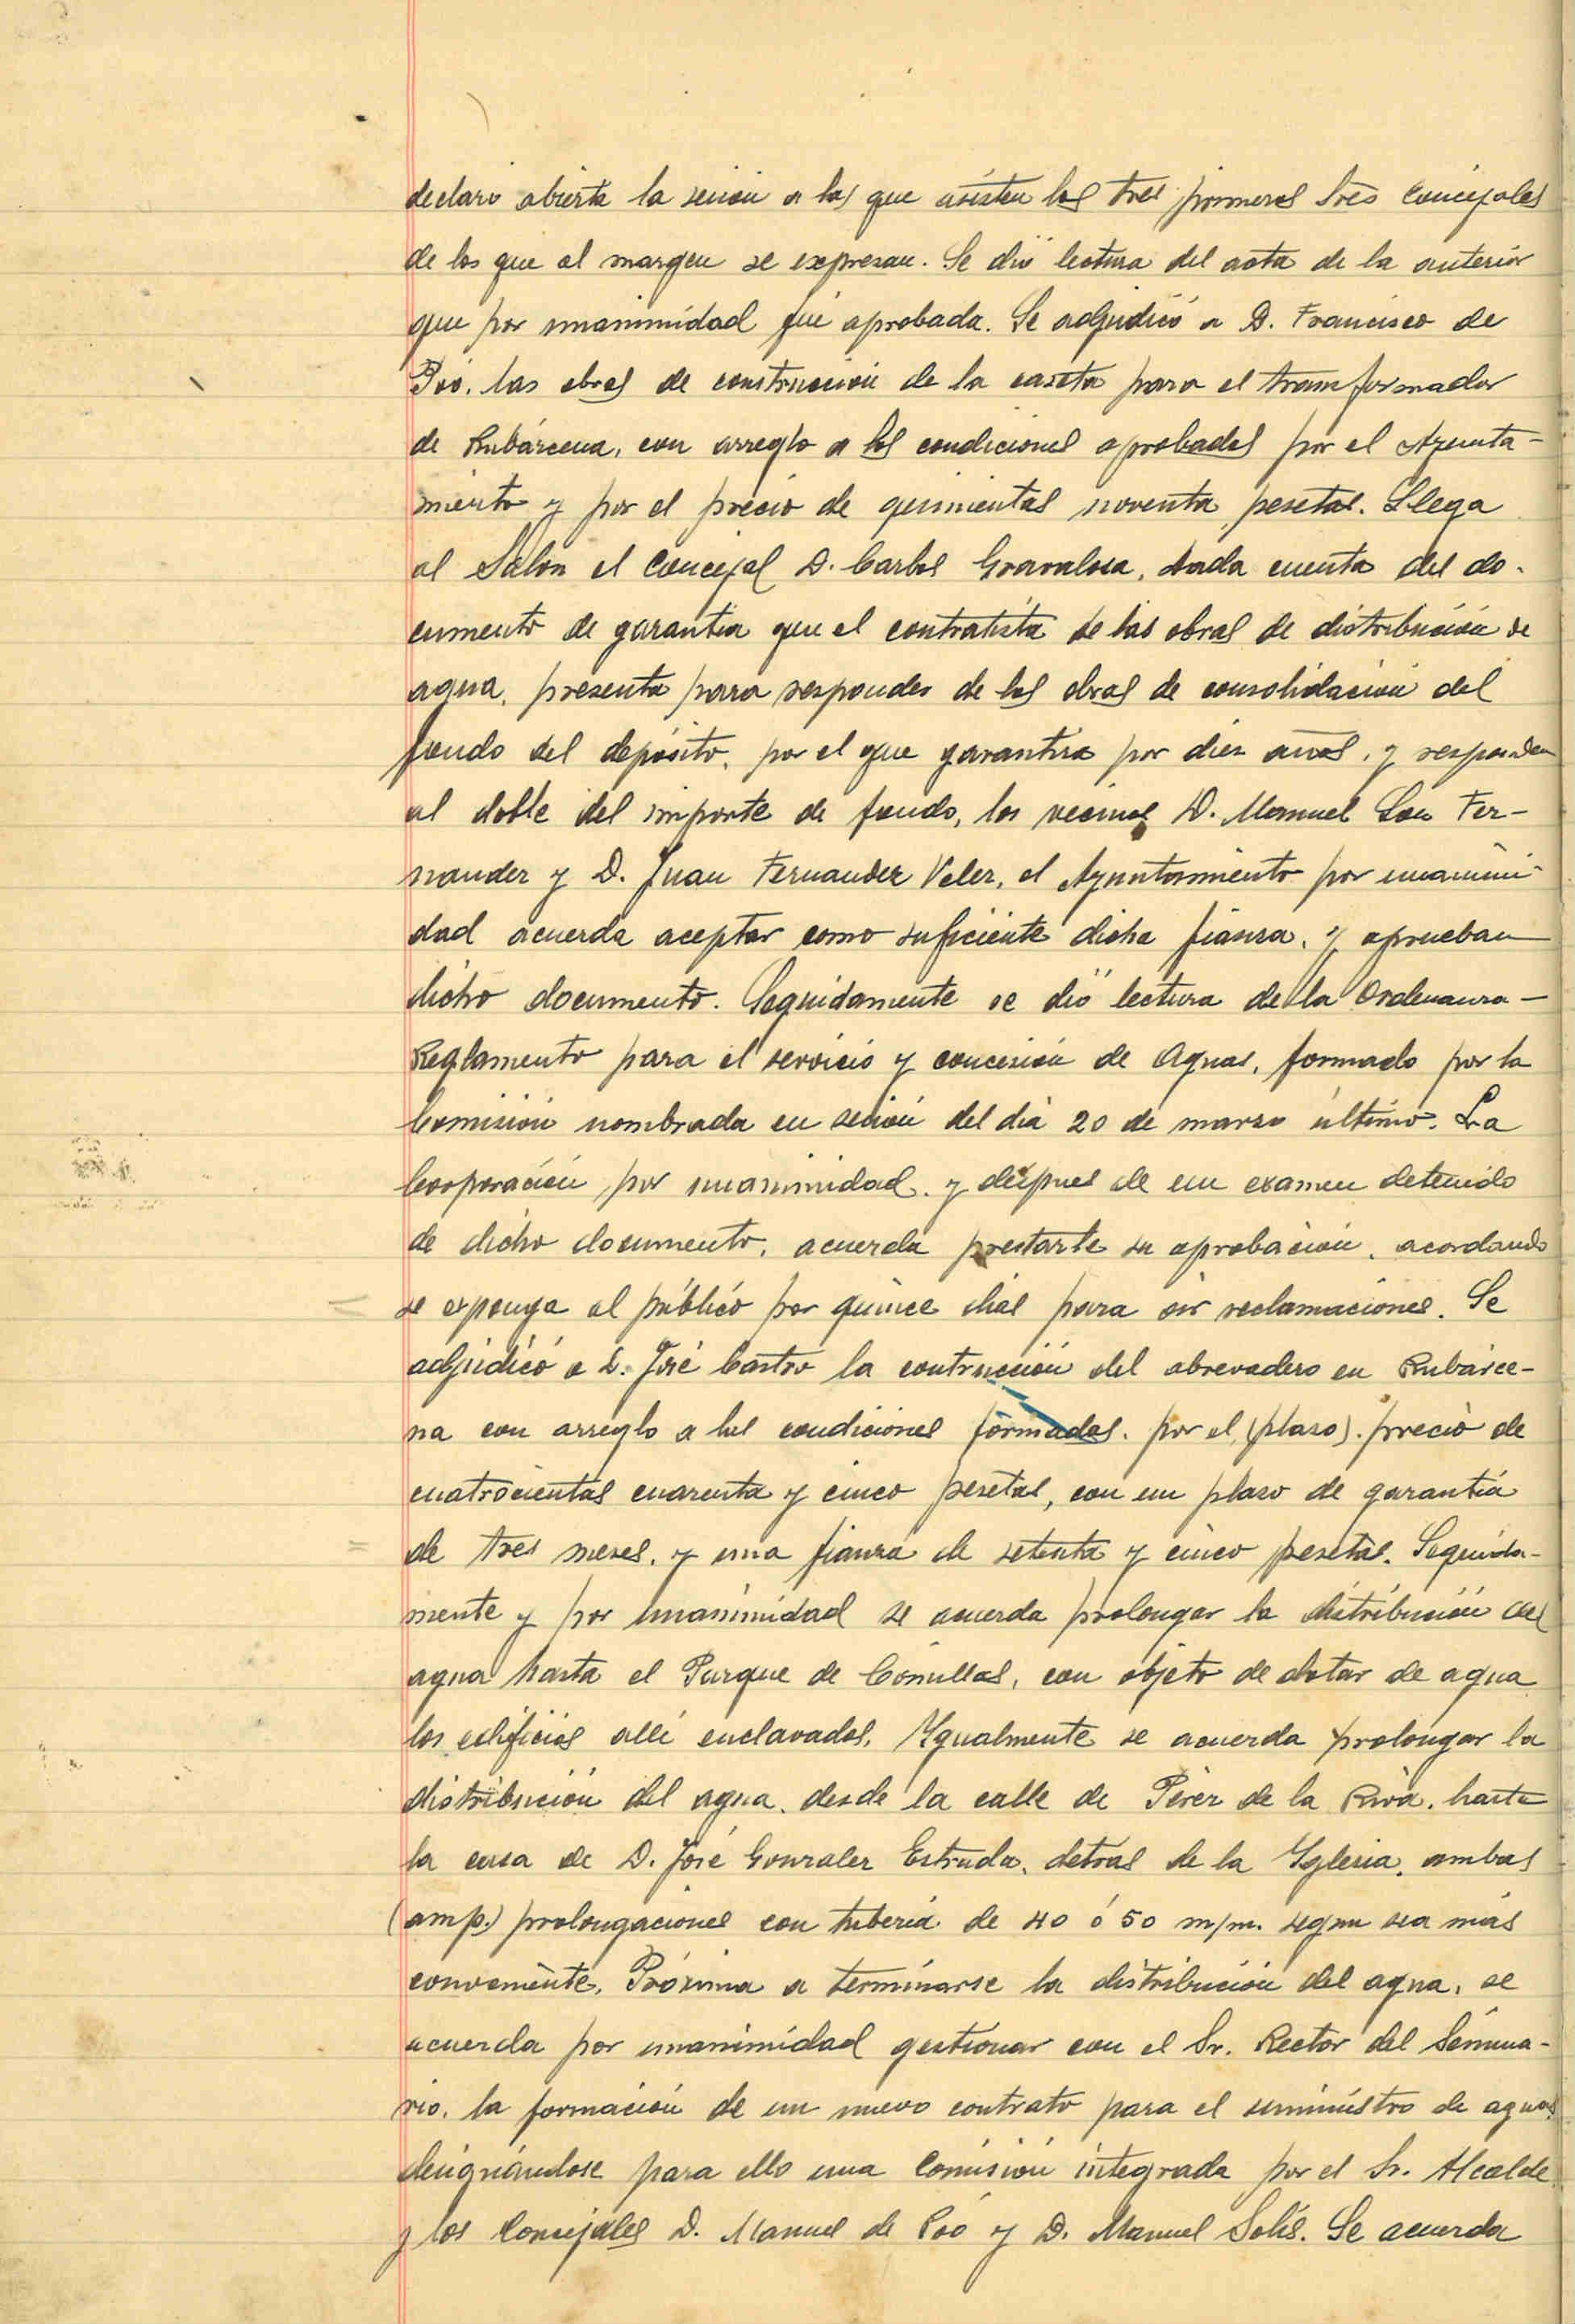 declaro abierta la sesion a las que asisten los tres primeros Sres Concejales
de los que al margen se expresan. Se dió lectura del acta de la anterior
que por unanimidad fué aprobada. Se adjudicó a D. Francisco de
Poo, las obras de construccion de la caseta para el transformador
de Rubárcena, con arreglo a las condiciones aprobadas por el Ayunta-
miento y por el precio de quinientas noventa pesetas. Llega
al Salon el Concejal D. Carlos Gravalosa, dada cuenta del do-
cumento de garantia que el contratista de las obras de distribución de
agua, presenta para responder de las obras de consolidacion del
fondo del depósito, por el que garantiza por diez años, y responden
al doble del importe de fondo, los vecinos D. Manuel San Fer-
nandez y D. Juan Fernandez Velez, el Ayuntamiento por unanimi-
dad acuerda aceptar como suficiente dicha fianza, y aprueban
dicho documento. Seguidamente se dió lectura de la Ordenanza-
Reglamento para el servicio y concesión de Aguas, formado por la
Comision nombrada en sesión del dia 20 de marzo último. La
Corporación por unanimidad, y despues de un examen detenido
de dicho documento, acuerda prestarle su aprobación, acordando
se exponga al público por quince dias para oir reclamaciones. Se
adjudicó a D. José Castro la contrucción del abrevadero en Rubárce-
na con arreglo a las condiciones formadas. por el (plazo). precio de
cuatrocientas cuarenta y cinco pesetas, con un plazo de garantía
de tres meses, y una fianza de setenta y cinco pesetas. Seguida-
mente y por unanimidad se acuerda prolongar la distribución del
agua hasta el Parque de Comillas, con objeto de dotar de agua
los edificios alli enclavados. Ygualmente se acuerda prolongar la
distribucion del agua, desde la calle de Pérez de la Riva, hasta
la casa de D. José Gonzalez Estrada, detras de la Yglesia, ambas
(amp.) prolongaciones con tuberia de 40 ó 50 m/m. segun sea más
conveniente. Próxima a terminarse la distribución del agua, se
acuerda por unanimidad gestionar con el Sr. Rector del Semina-
rio, la formación de un nuevo contrato para el suministro de aguas
designándose para ello una Comisión integrada por el Sr. Alcalde
y los Concejales D. Manuel de Poo y D. Manuel Solís. Se acuerda